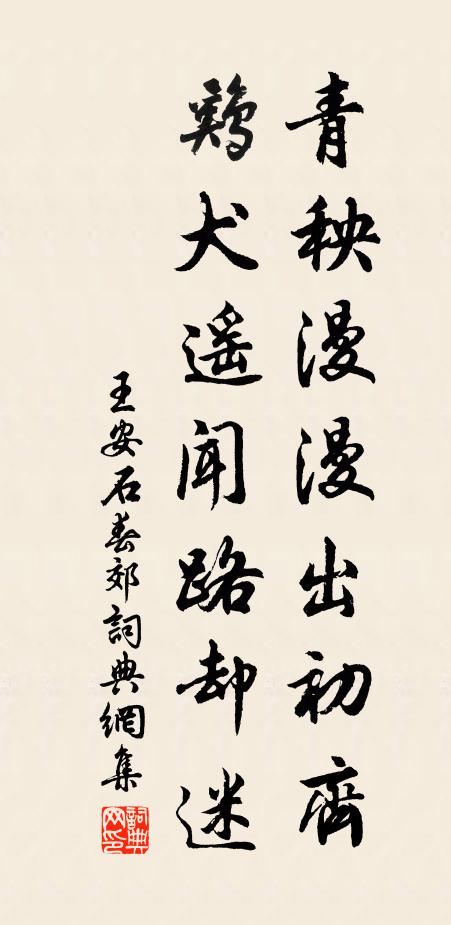 青秧漫漫出初齊
鷄犬遥聞路却迷
王安石春郊詞典網集
詞典網印